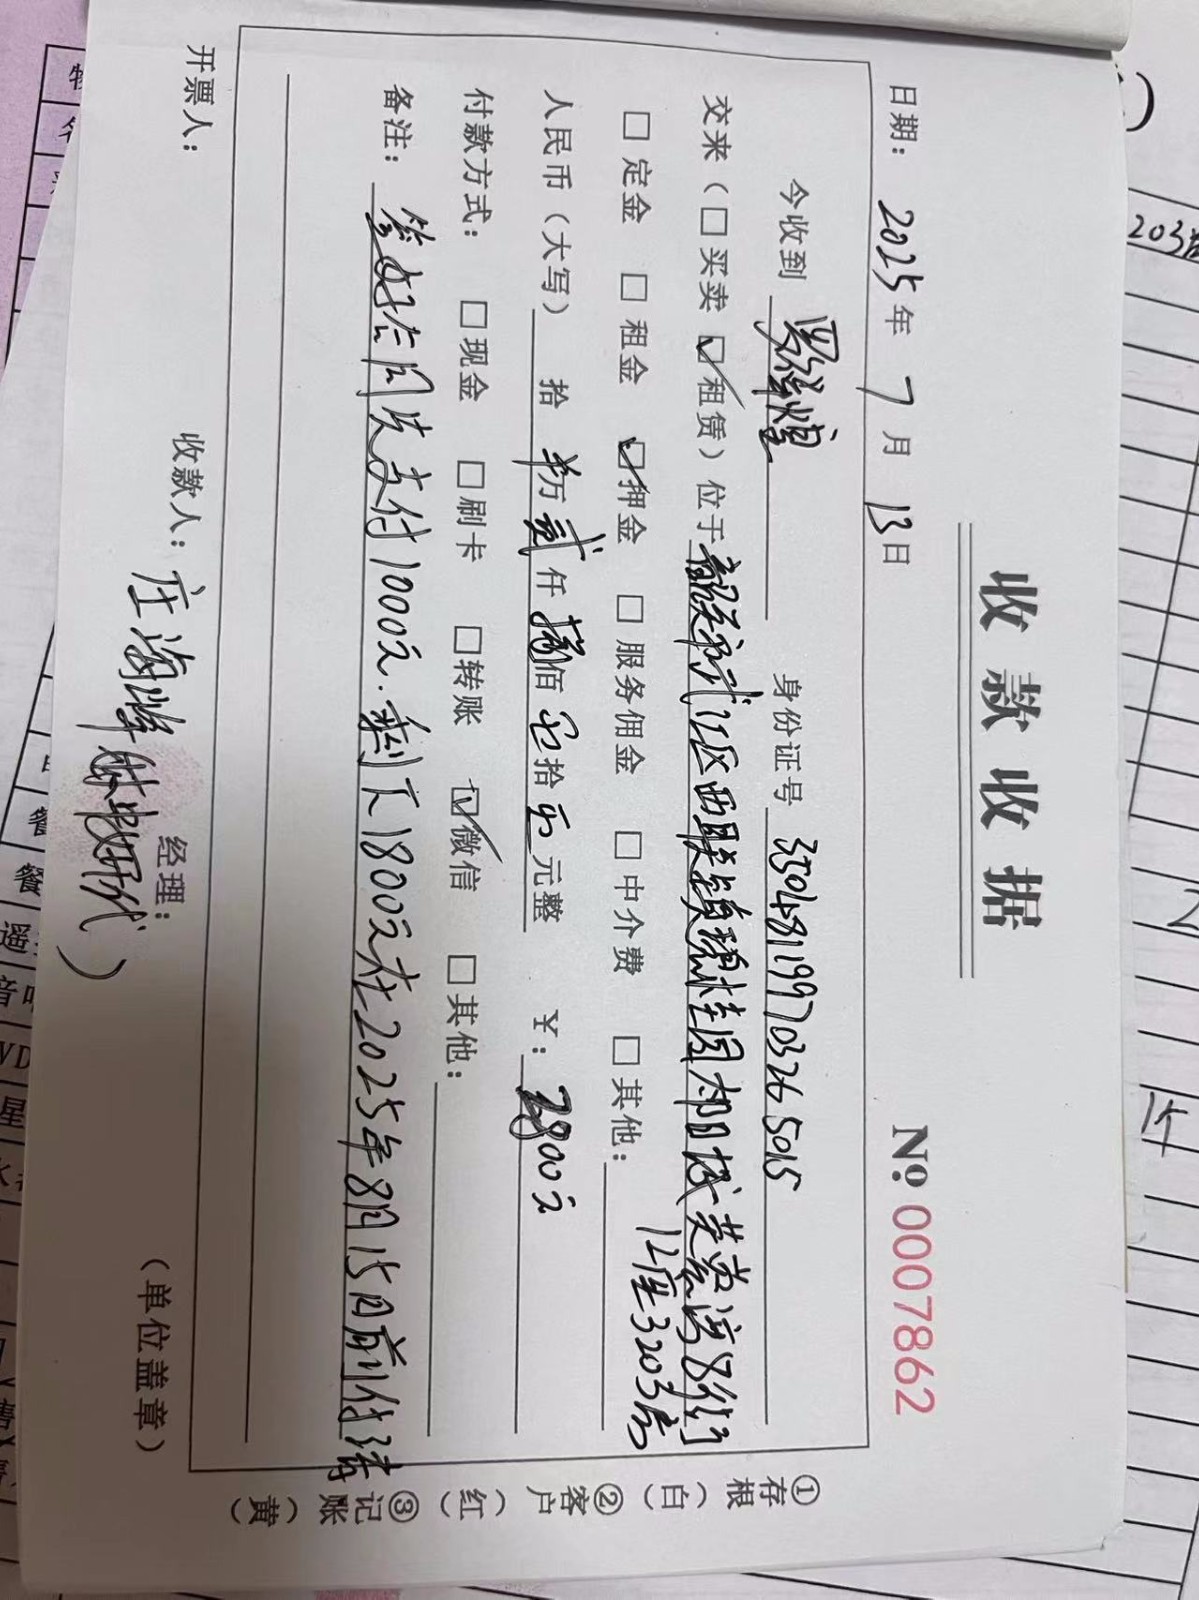 收款收据
№ 0007862
日期： 2025年 7月 13日
今收到 罗祥煌 身份证号 350481199703265015
交来（□买卖 ☑租赁）位于 区西联镇碧桂园 8街
12座3203房
□定金 □租金 ☑押金 □服务佣金 □中介费 □其他：
人民币（大写） 拾 万 贰仟 捌佰 零拾 零元整 ¥：2800元
付款方式： □现金 □刷卡 □转账 ☑微信 □其他：
备注： 签好合同先支付1000元.剩下1800元在2025年8月15日前付清
开票人： 收款人： 庄海峰 经理： （单位盖章）
代）
①存根（白） ②客户（红） ③记账（黄）